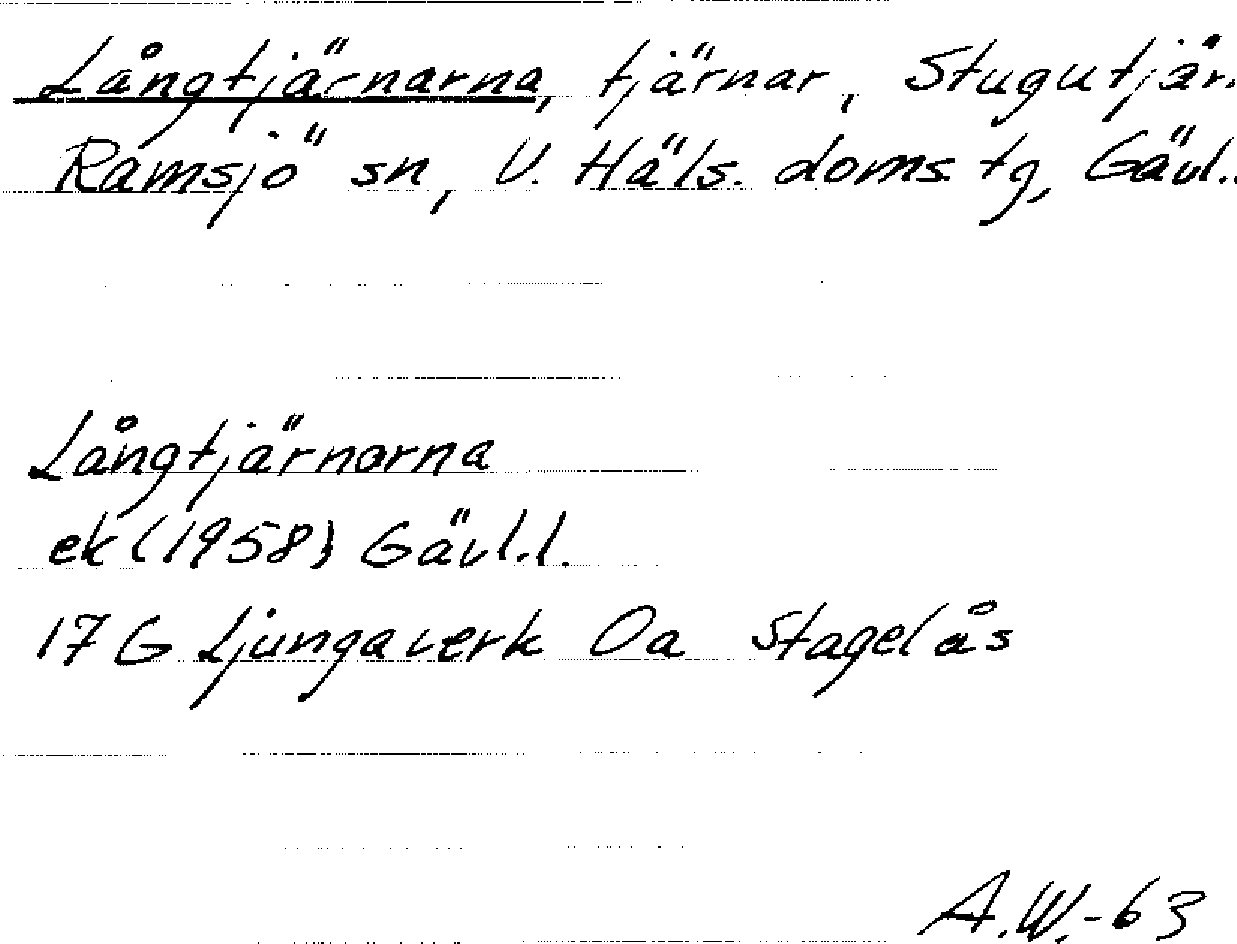 Långtjärnarna, tjärnar, Stugutjär
Ramsjö sn, V. Häls. doms. tg, Gävl.
Långtjärnarna
ek (1958) Gävl.l.
17 G Ljungaverk 0a Stagelås
A.W.-63